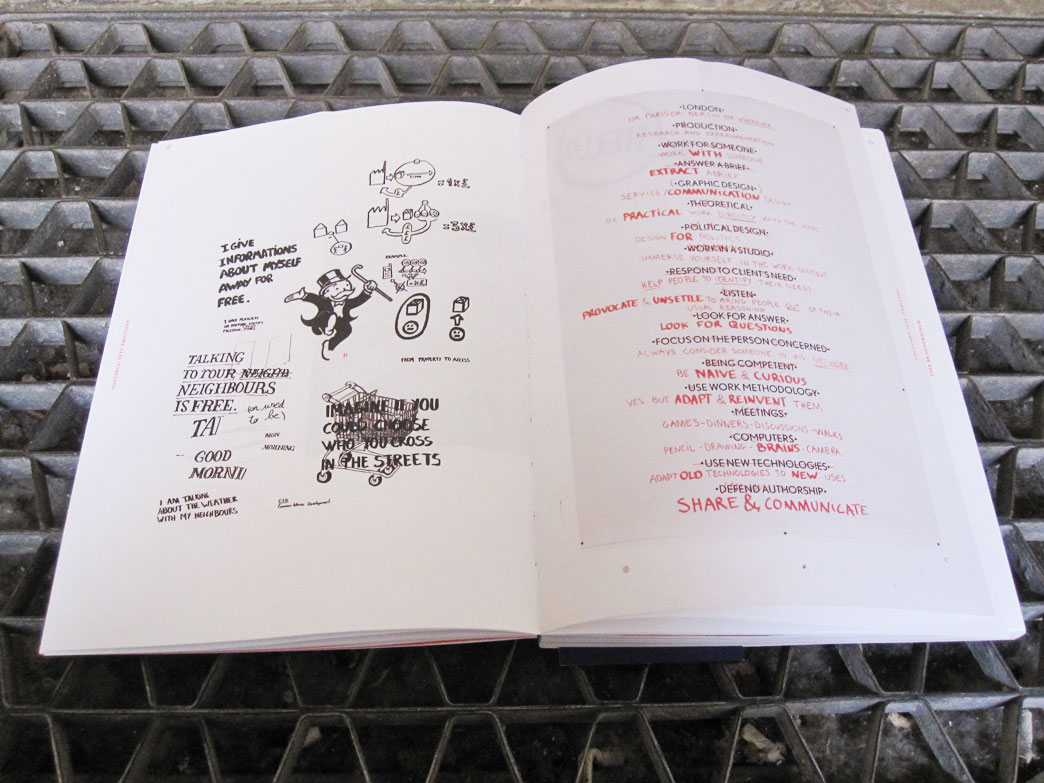 I GIVE
INFORMATIONS
ABOUT MYSELF
AWAY FOR
FREE.
EXAMPLE
FROM PROPERTY TO ACCESS
TALKING
TO YOUR
NEIGHBOURS
IS FREE.
(or used
to be)
TA
MON
MORNING
GOOD
MORNI
I AM TALKING
ABOUT THE WEATHER
WITH MY NEIGHBOURS
IMAGINE IF YOU
COULD CHOOSE
WHO YOU CROSS
IN THE STREETS
•LONDON•
OR PARIS OR BERLIN OR WHEREVER
•PRODUCTION•
RESEARCH AND EXPERIMENTATION
•WORK FOR SOMEONE•
WORK WITH SOMEONE
•ANSWER A BRIEF•
EXTRACT A BRIEF
(•GRAPHIC DESIGN•)
SERVICE/COMMUNICATION DESIGN
•THEORETICAL•
BE PRACTICAL WORK DIRECTLY WITH THE USERS
•POLITICAL DESIGN•
DESIGN FOR POLITICS
•WORK IN A STUDIO•
IMMERSE YOURSELF IN THE WORK CONTEXT
•RESPOND TO CLIENT'S NEED•
HELP PEOPLE TO IDENTIFY THEIR NEEDS
•LISTEN•
PROVOCATE & UNSETTLE TO BRING PEOPLE OUT OF THEIR
USUAL REASONING
•LOOK FOR ANSWER•
LOOK FOR QUESTIONS
•FOCUS ON THE PERSON CONCERNED•
ALWAYS CONSIDER SOMEONE IN HIS NETWORK
•BEING COMPETENT•
BE NAIVE & CURIOUS
•USE WORK METHODOLOGY•
YES BUT ADAPT & REINVENT THEM
•MEETINGS•
GAMES-DINNERS-DISCUSSIONS-WALKS
•COMPUTERS•
PENCIL-DRAWING-BRAINS-CAMERA
•USE NEW TECHNOLOGIES•
ADAPT OLD TECHNOLOGIES TO NEW USES
•DEFEND AUTHORSHIP•
SHARE & COMMUNICATE